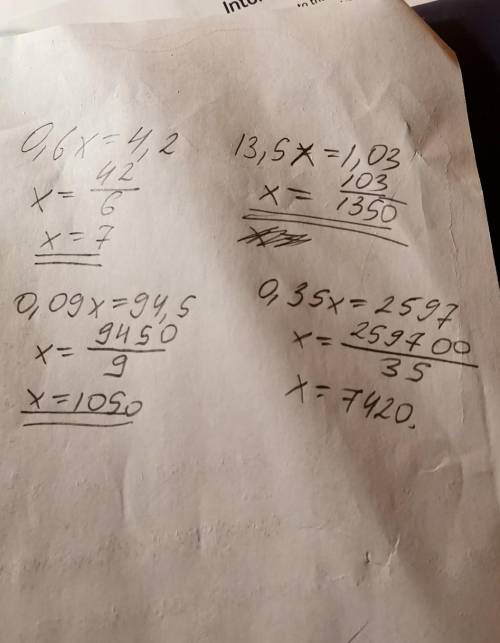 Inte
to the
0,6x=4,2
x=42/6
x=7
13,5x=1,03
x=103/1350
0,09x=94,5
x=9450/9
x=1050
0,35x=2597
x=259700/35
x=7420.